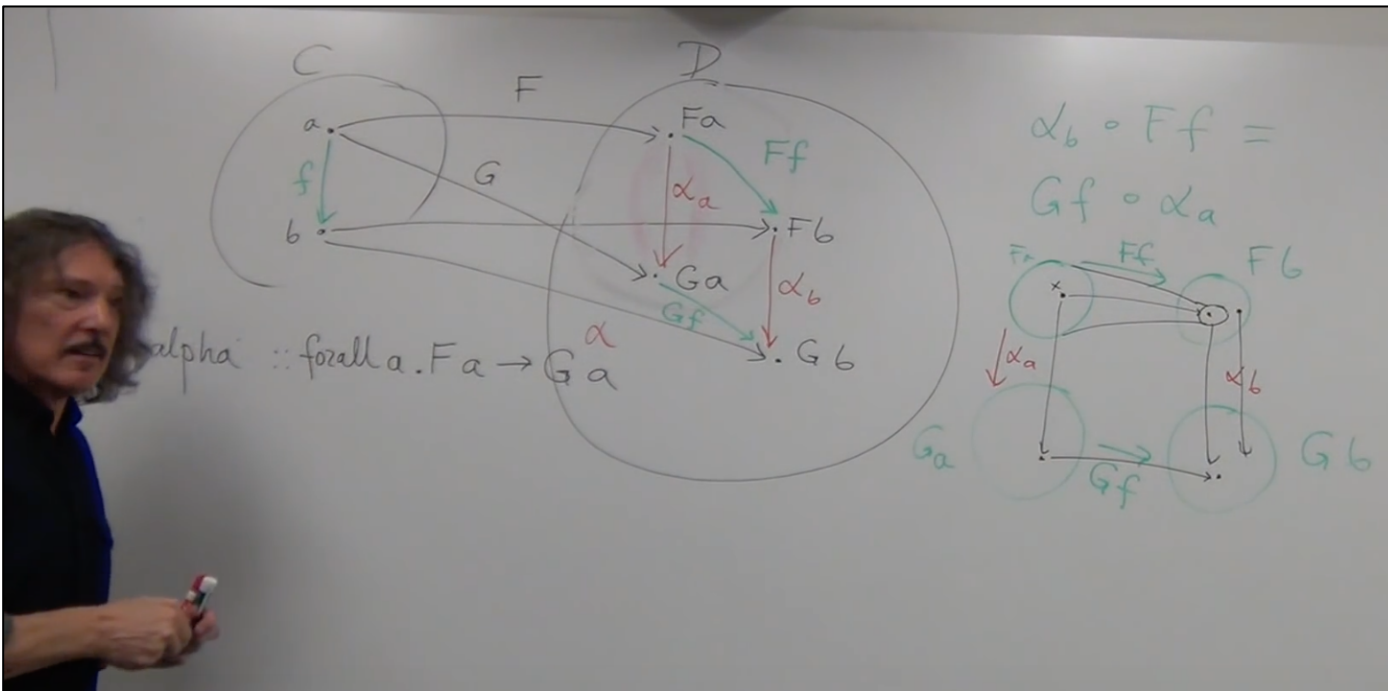 C
D
F
a
Fa
Ff
f
G
α_a
b
Fb
Ga
Gf
α_b
α
Gb
alpha :: forall a. Fa → Ga
α_b ∘ Ff =
Gf ∘ α_a
Fa
Ff
Fb
x
α_a
α_b
Ga
Gf
Gb